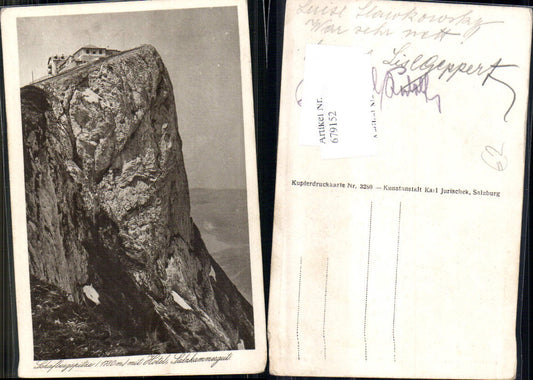 Schafbergspitze (1780 m) mit Hotel, Salzkammergut
Luise Slawkowsky
War sehr nett
Lisl Geppert
Artikel Nr.
679152
62
Kupferdruckkarte Nr. 3298 — Kunstanstalt Karl Jurischek, Salzburg